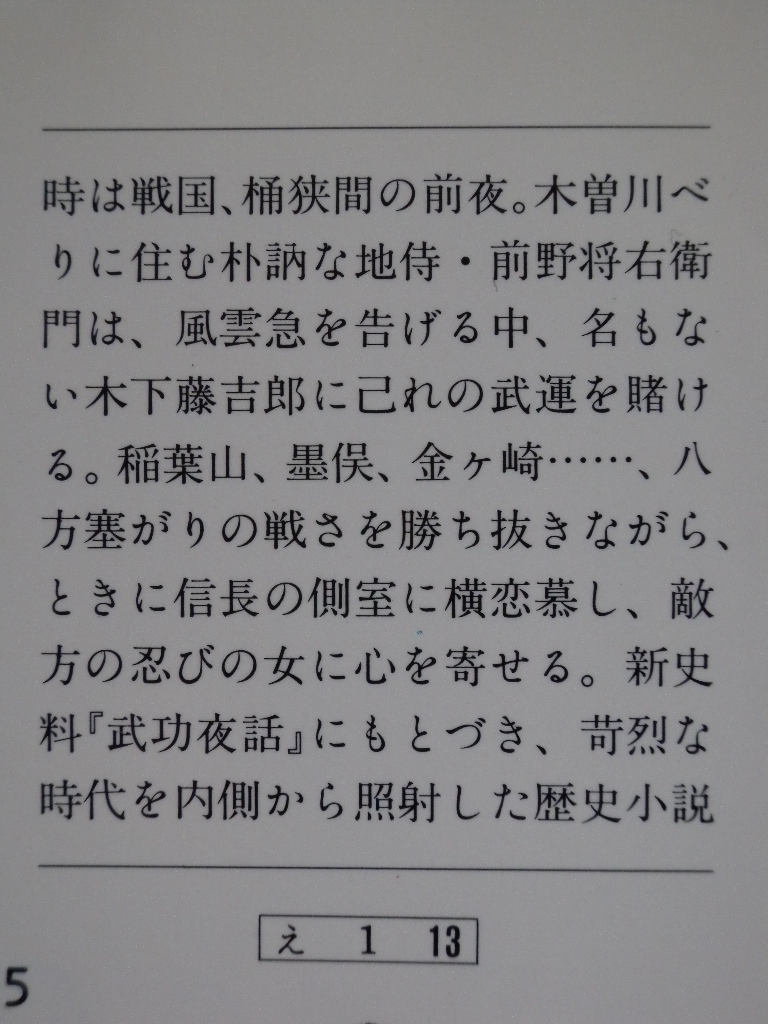 時は戦国、桶狭間の前夜。木曽川べ
りに住む朴訥な地侍・前野将右衛
門は、風雲急を告げる中、名もな
い木下藤吉郎に己れの武運を賭け
る。稲葉山、墨俣、金ヶ崎……、八
方塞がりの戦さを勝ち抜きながら、
ときに信長の側室に横恋慕し、敵
方の忍びの女に心を寄せる。新史
料『武功夜話』にもとづき、苛烈な
時代を内側から照射した歴史小説
え 1 13
5